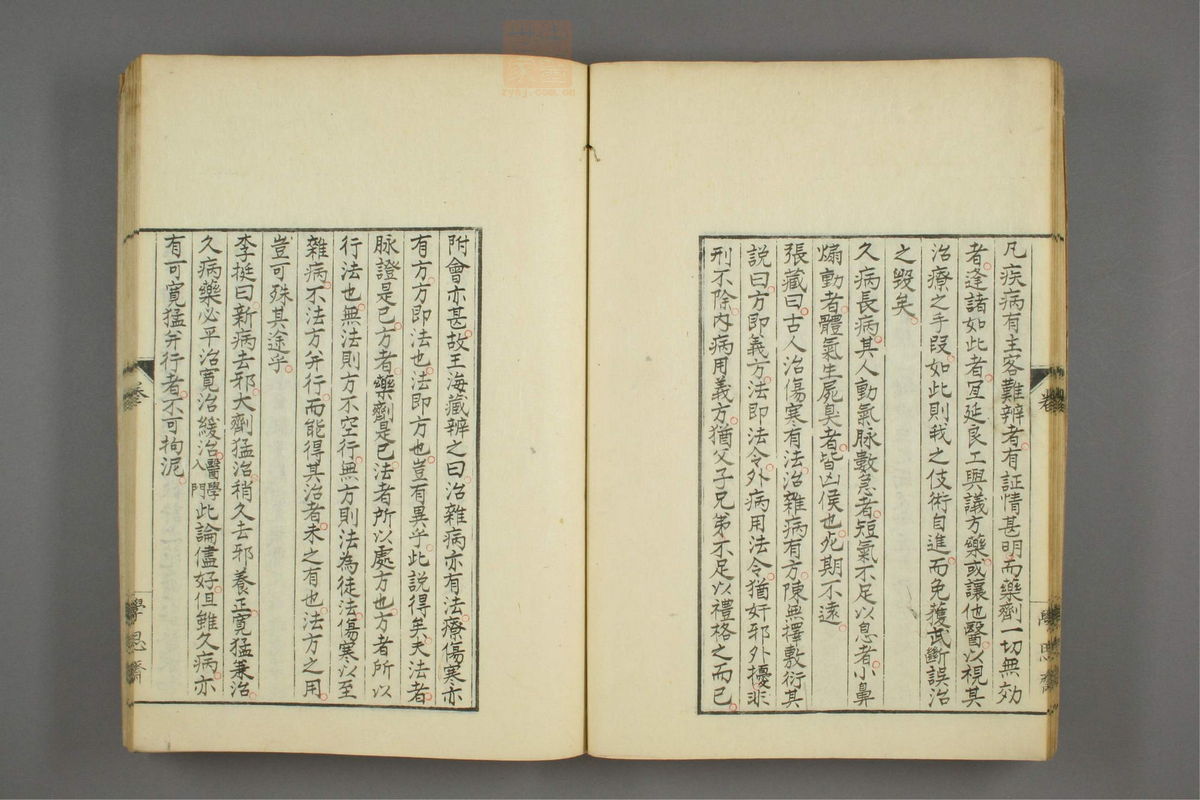 凡疾病有主客難辨者有証情甚明而藥劑一切無効
者逢諸如此者宜延良工與議方藥或讓他醫以視其
治療之手段如此則我之伎術自進而免獲武斷誤治
之毀矣
久病長病其人動氣脉數急者短氣不足以息者小鼻
煽動者體氣生屍臭者皆凶候也死期不遠
張藏曰古人治傷寒有法治雜病有方陳無擇敷衍其
說曰方即義方法即法令外病用法令猶奸邪外擾非
刑不除內病用義方猶父子兄弟不足以禮格之而已
附會亦甚故王海藏辨之曰治雜病亦有法療傷寒亦
有方方即法也法即方也豈有異乎此説得矣夫法者
脉證是已方者藥劑是已法者所以處方也方者所以
行法也無法則方不空行無方則法為徒法傷寒以至
雜病不法方并行而能得其治者未之有也法方之用
豈可殊其途乎
李挺曰新病去邪大劑猛治稍久去邪養正寬猛兼治
久病藥必平治寬治緩治醫學入門此論儘好但雖久病亦
有可寬猛并行者不可拘泥
卷
學思齋